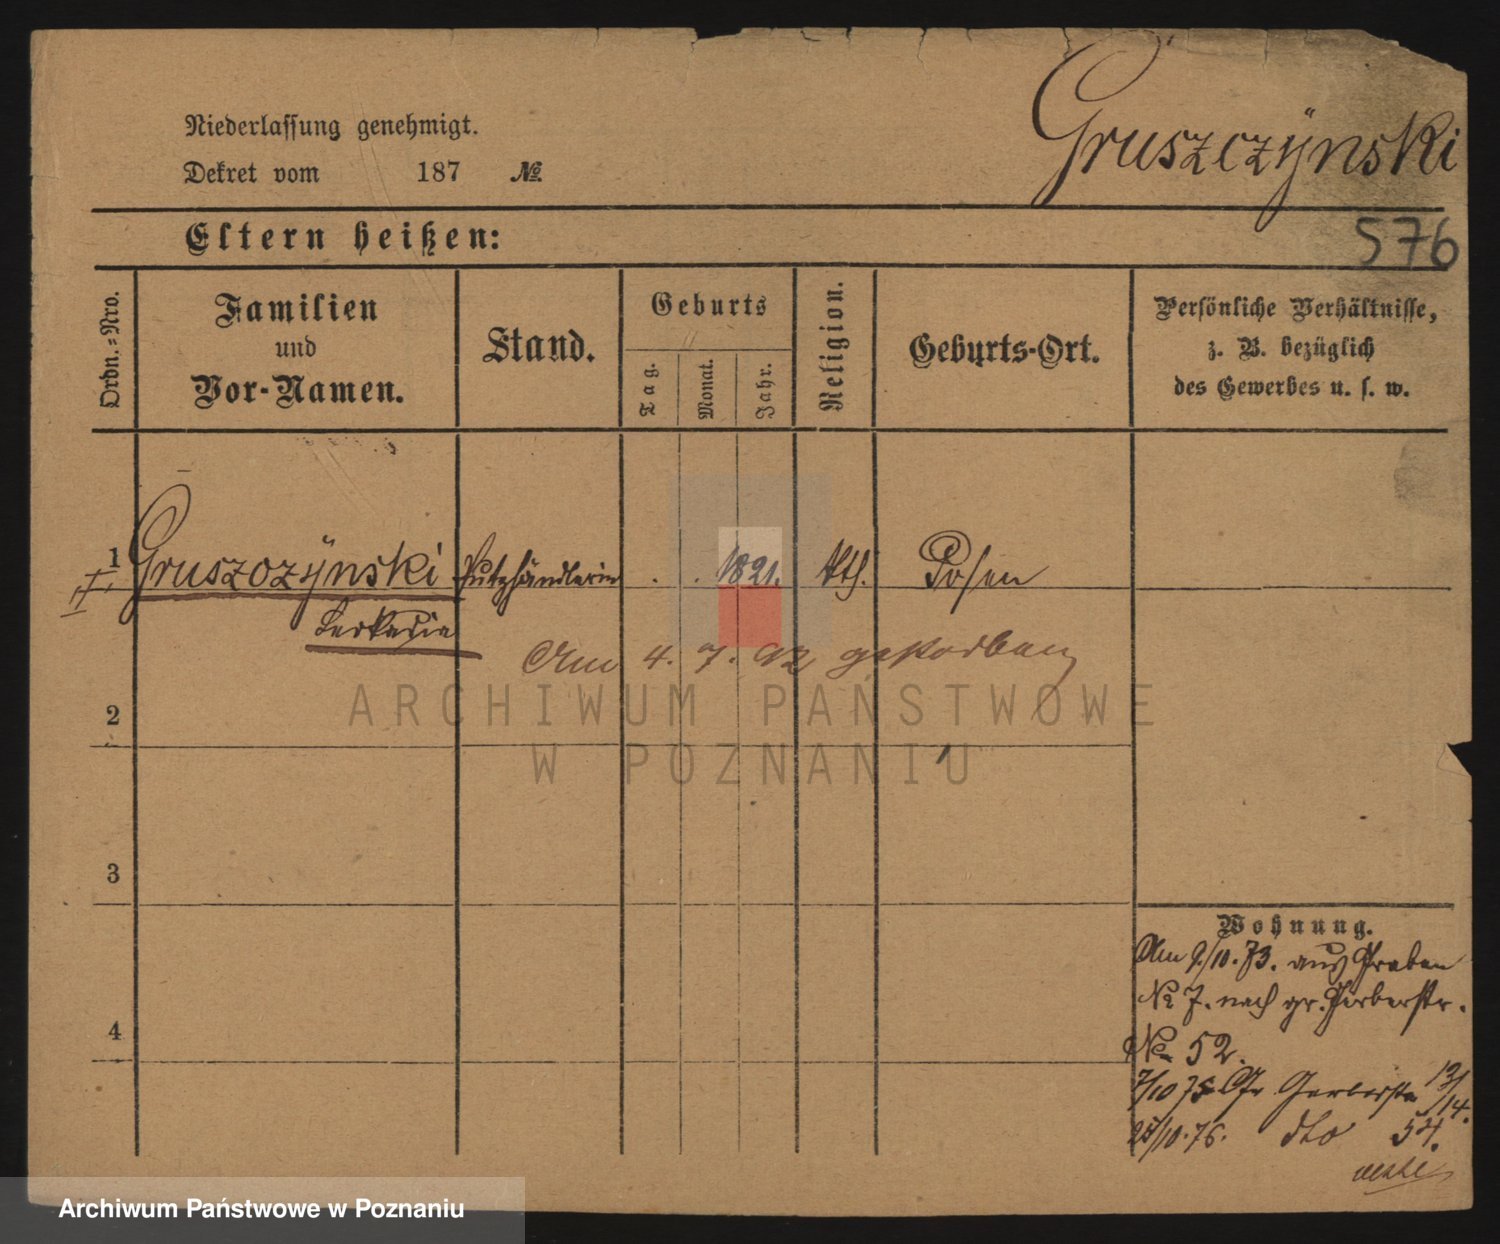 Gruszczÿnski
Niederlassung genehmigt.
Dekret vom 187 №
Eltern heißen:
576
Ordn.=Nro.
Familien
und
Vor-Namen.
Stand.
Geburts
Tag.
Monat.
Jahr.
Religion.
Geburts-Ort.
Persönliche Verhältnisse,
z. B. bezüglich
des Gewerbes u. s. w.
1 Gruszczÿnski Putzhändlerin . . 1821. kth. Posen
Leokadia
Am 4. 7. 92 gestorben
ARCHIWUM PAŃSTWOWE
W POZNANIU
2
3
4
Wohnung.
Am 9/10. 73. aus Graben
№ 7. nach gr. Gerberstr.
№ 52.
7/10 75 Gr Gerberstr 13/14.
25/10. 76. dto 54.
Archiwum Państwowe w Poznaniu